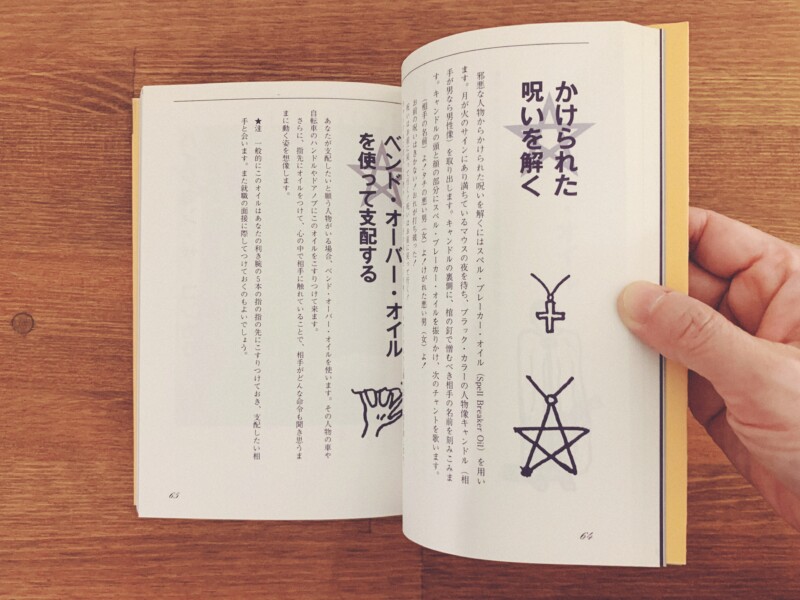 かけられた
呪いを解く
邪悪な人物からかけられた呪いを解くにはスペル・ブレーカー・オイル (Spell Breaker Oil) を用い
ます。月が火のサインにあり満ちているマウスの夜を待ち、ブラック・カラーの人物像キャンドル(相
手が男なら男性像)を取り出します。キャンドルの裏側に、棺の釘で憎むべき相手の名前を刻みこみま
す。キャンドルの頭と顔の部分にスペル・ブレーカー・オイルを振りかけ、次のチャントを歌います。
(相手の名前)よ!タチの悪い男(女)よ!けがれた悪い男(女)よ!
お前の呪いはきかない!おれが打ち破った!
64
ベンド・オーバー・オイル
を使って支配する
あなたが支配したいと願う人物がいる場合、ベンド・オーバー・オイルを使います。その人物の車や
自転車のハンドルやドアノブにこのオイルをこすりつけて来ます。
さらに、指先にオイルをつけて、心の中で相手に触れていることで、相手がどんな命令も聞き思うま
まに動く姿を想像します。
★注 一般的にこのオイルはあなたの利き腕の5本の指の指の先にこすりつけておき、支配したい相
手と会います。また就職の面接に際してつけておくのもよいでしょう。
65